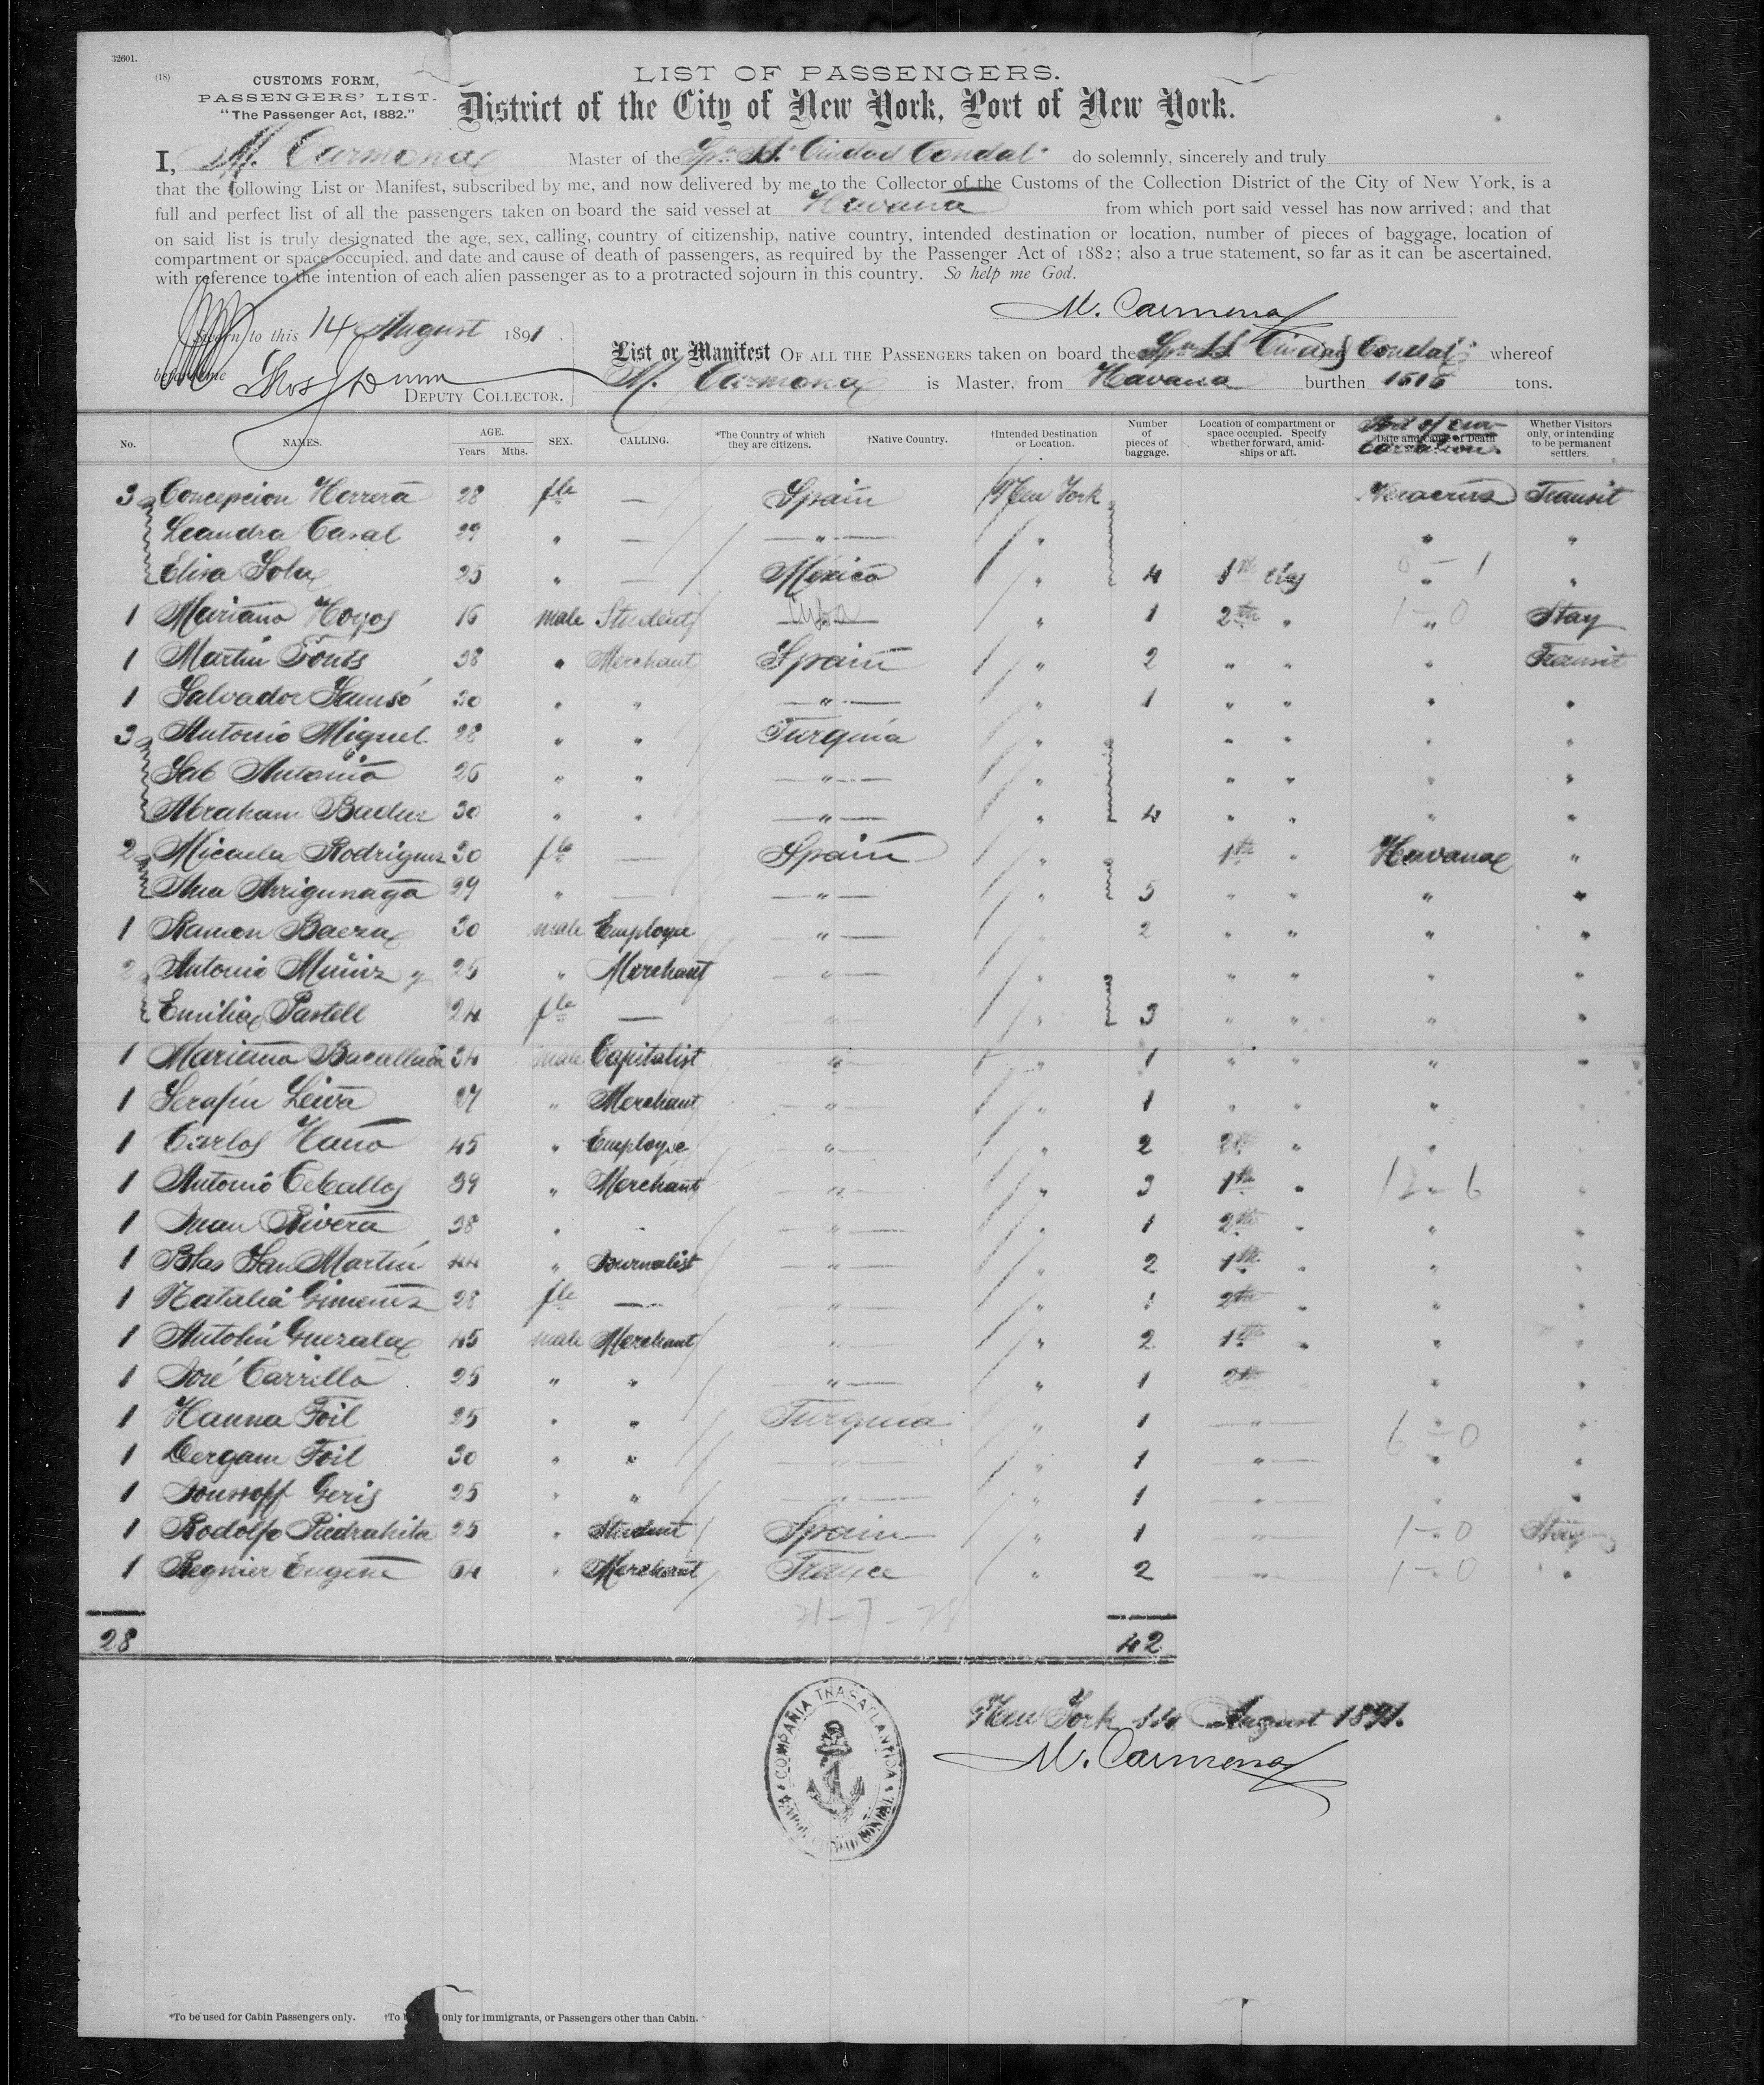 32601.
(18)
CUSTOMS FORM,
PASSENGERS' LIST.
"The Passenger Act, 1882."
LIST OF PASSENGERS.
District of the City of New York, Port of New York.
I, M. Carmona Master of the Spn. St. "Ciudad Condal" do solemnly, sincerely and truly
that the following List or Manifest, subscribed by me, and now delivered by me to the Collector of the Customs of the Collection District of the City of New York, is a
full and perfect list of all the passengers taken on board the said vessel at Havana from which port said vessel has now arrived; and that
on said list is truly designated the age, sex, calling, country of citizenship, native country, intended destination or location, number of pieces of baggage, location of
compartment or space occupied, and date and cause of death of passengers, as required by the Passenger Act of 1882; also a true statement, so far as it can be ascertained,
with reference to the intention of each alien passenger as to a protracted sojourn in this country. So help me God.
M. Carmona
Sworn to this 14 August 1891
before me Thos J Dunn
DEPUTY COLLECTOR.
List or Manifest OF ALL THE PASSENGERS taken on board the Spn. St. "Ciudad Condal" whereof
M. Carmona is Master, from Havana burthen 1616 tons.
No. NAMES. AGE. Years Mths. SEX. CALLING. *The Country of which they are citizens. †Native Country. †Intended Destination or Location. Number of pieces of baggage. Location of compartment or space occupied. Specify whether forward, amidships or aft. Date and cause of Death Port of embarcation. Whether Visitors only, or intending to be permanent settlers.
3 Concepcion Herrera 28 fle — Spain New York Veracruz Transit
Leandra Casal 29 " — " " " "
Elisa Sola 25 " — Mexico " 4 1th clas " 0-1 "
1 Mariano Hoyos 16 male Student Cuba " 1 2th " " 1-0 Stay
1 Martin Fonts 38 " Merchant Spain " 2 " " " Transit
1 Salvador Samsó 30 " " " " 1 " " " "
3 Antonio Miguel 28 " " Turquia " " " " "
Sab Antonio 26 " " " " " " " "
Abraham Badur 30 " " " " 4 " " " "
2 Micaela Rodriguez 30 fle — Spain " 1th " Havana "
Ana Arrigunaga 29 " — " " 5 " " " "
1 Ramon Baeza 30 male Employe " " 2 " " " "
2 Antonio Muñiz y 25 " Merchant " " " " " "
Emilia Pastell 24 fle — " " 3 " " " "
1 Mariano Bacallao 34 male Capitalist " " 1 " " " "
1 Serafin Leiva 27 " Merchant " " 1 " " " "
1 Carlos Hano 45 " Employe " " 2 2th " " "
1 Antonio Ceballos 39 " Merchant " " 3 1th " 12-6 "
1 Juan Rivera 38 " " " " 1 2th " " "
1 Blas San Martin 44 " Journalist " " 2 1th " " "
1 Natalia Gimenez 28 fle — " " 1 2th " " "
1 Antolin Guezala 45 male Merchant " " 2 1th " " "
1 José Carrillo 25 " " " " 1 2th " " "
1 Hanna Foil 25 " " Turquia " 1 " " "
1 Dergam Foil 30 " " " " 1 " " 6-0 "
1 Joussoff Geris 25 " " " " 1 " " "
1 Rodolfo Piedrahita 25 " Student Spain " 1 " 1-0 Stay
1 Regnier Eugene 64 " Merchant France " 2 " 1-0 "
28 21-7-28 42
COMPAÑIA TRASATLANTICA
VAPOR CIUDAD CONDAL
New York 14 August 1891.
M. Carmona
*To be used for Cabin Passengers only. †To only for immigrants, or Passengers other than Cabin.